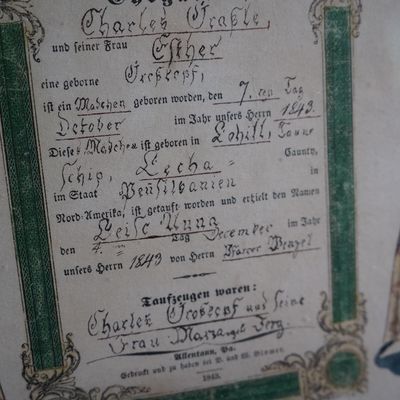 Charles Traxle,
und seiner Frau Esther
eine geborne Großkopf,
ist ein Mädchen geboren worden, den 7.ten Tag
October im Jahr unsers Herrn 1843.
Dieses Mädchen ist geboren in Lohill, Taun=
schip, Lecha= Caunty,
im Staat Pensilvanien in
Nord-Amerika, ist getauft worden und erhielt den Namen
Anna
den 4. Tag December im Jahr
unsers Herrn 1843 von Herrn Pfarrer Wenzel
Taufzeugen waren:
Charles Großkopf und seine
Frau
Allentaun, Pa.
Gedruckt und zu haben bei
1843.